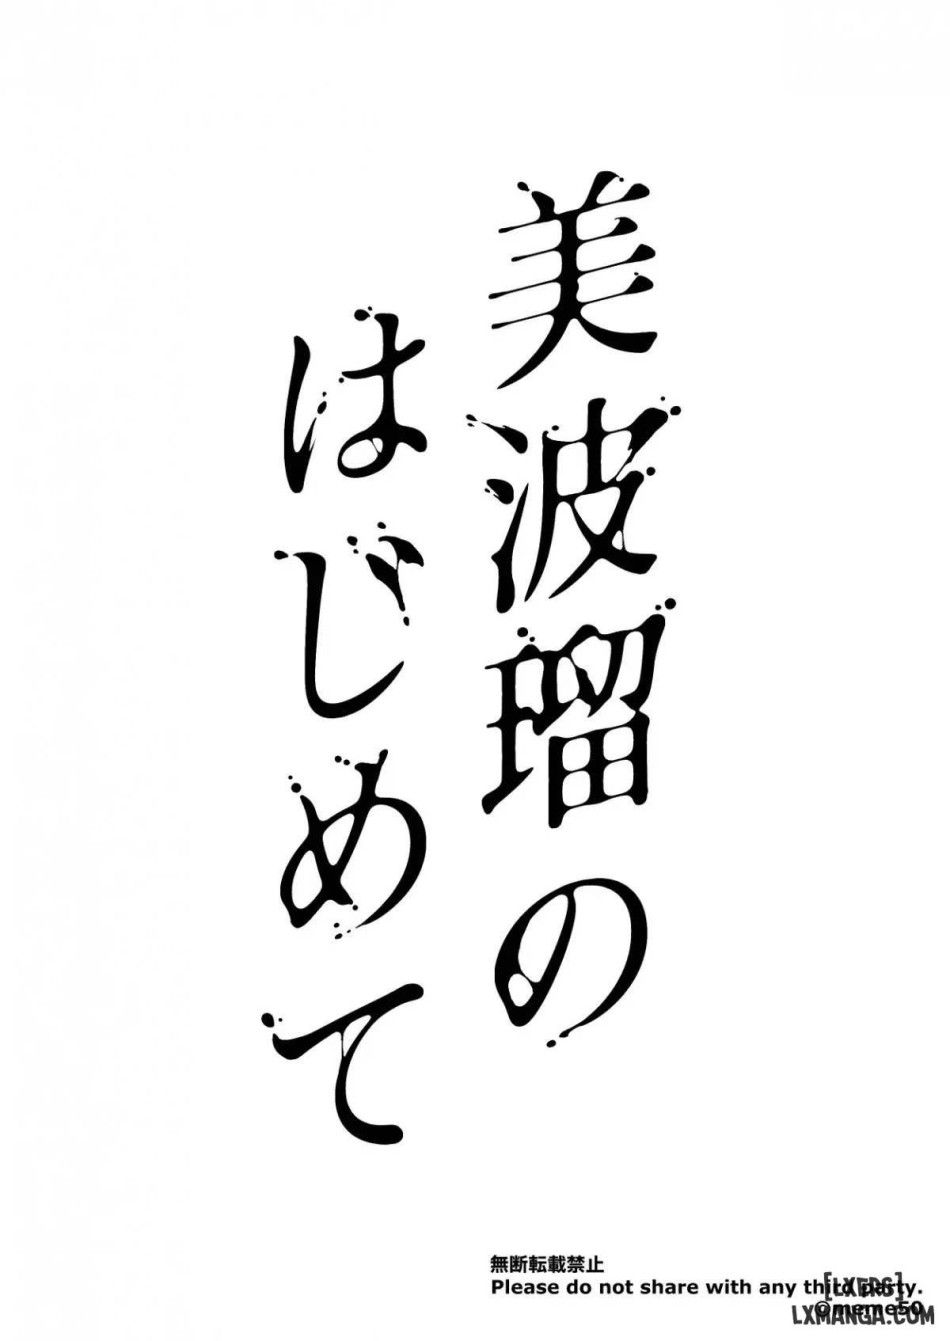 美波瑠の
はじめて
無断転載禁止
Please do not share with any third party.
[LXERS]
©meme50
LXMANGA.COM